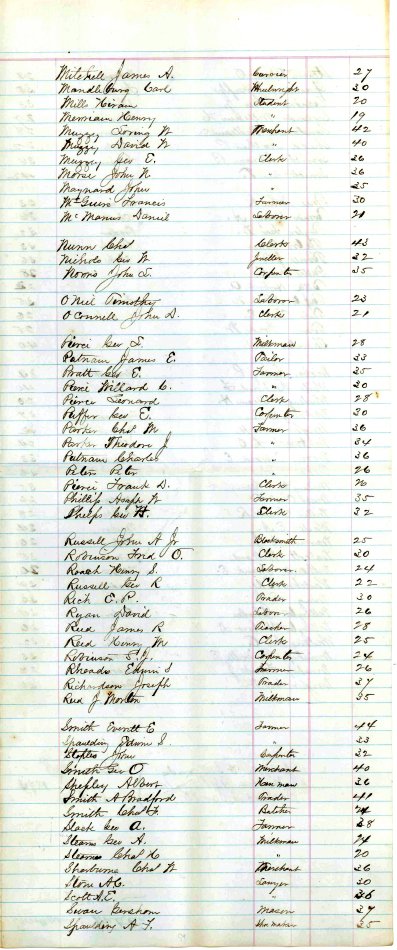 Mitchell James A. Currier 27
Mandleburg Carl Wheelwright 30
Mills Hiram Student 20
Merriam Henry " 19
Muzzy Loring W Merchant 42
Muzzy David W " 40
Muzzy Geo E. Clerk 36
Morse John N " 36
Maynard John " 35
McGuire Francis Farmer 30
McManus Daniel Laborer 21
Nunn Chas Clerk 43
Nichols Geo W Jueller 32
Norris John S. Carpenter 35
O'Niel Timothy Laborer 23
O'Connell John D. Clerk 21
Pierce Geo L. Milkman 28
Putnam James E. Tailor 33
Pratt Geo E. Farmer 35
Peirce Willard C. " 30
Pierce Leonard Clerk 28
Puffer Geo E. Carpenter 30
Parker Chas M Farmer 36
Parker Theodore J " 34
Putnam Charles " 36
Peters Peter " 26
Pierce Frank D. Clerk 26
Phillips Asaph W Farmer 35
Phelps Geo H. Clerk 32
Russell John A Jr Blacksmith 25
Robinson Ford O Clerk 30
Roach Henry S. Laborer 24
Russell Geo R Clerk 22
Rich E. P. Trader 30
Ryan David Labor 26
Reed James R Teacher 28
Reed Henry M Clerk 25
Robinson T. J. Carpenter 24
Rhoades Edwin S Farmer 26
Richardson Joseph Trader 37
Reed J Morton Milkman 35
Smith Everett E Farmer 44
Spaulding Edwin S. " 33
Staples John Carpenter 32
Smith Geo O Merchant 40
Shepley Albert 36
Smith A Bradford Trader 41
Smith Chas F. Butcher 24
Slack Geo A. Farmer 38
Stearns Geo A. Milkman 24
Stearns Chas H " 20
Sherburne Chas W Merchant 36
Stone A C. Lawyer 30
Scott A. E. " 36
Swan Gershom Mason 37
Spaulding A. F. Shoemaker 35